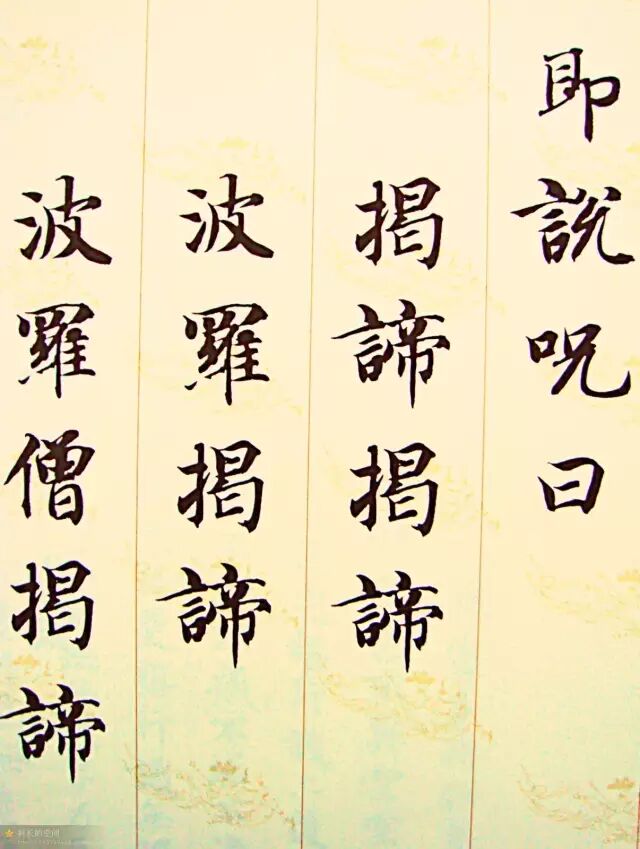 即說呪曰
揭諦揭諦
波羅揭諦
波羅僧揭諦